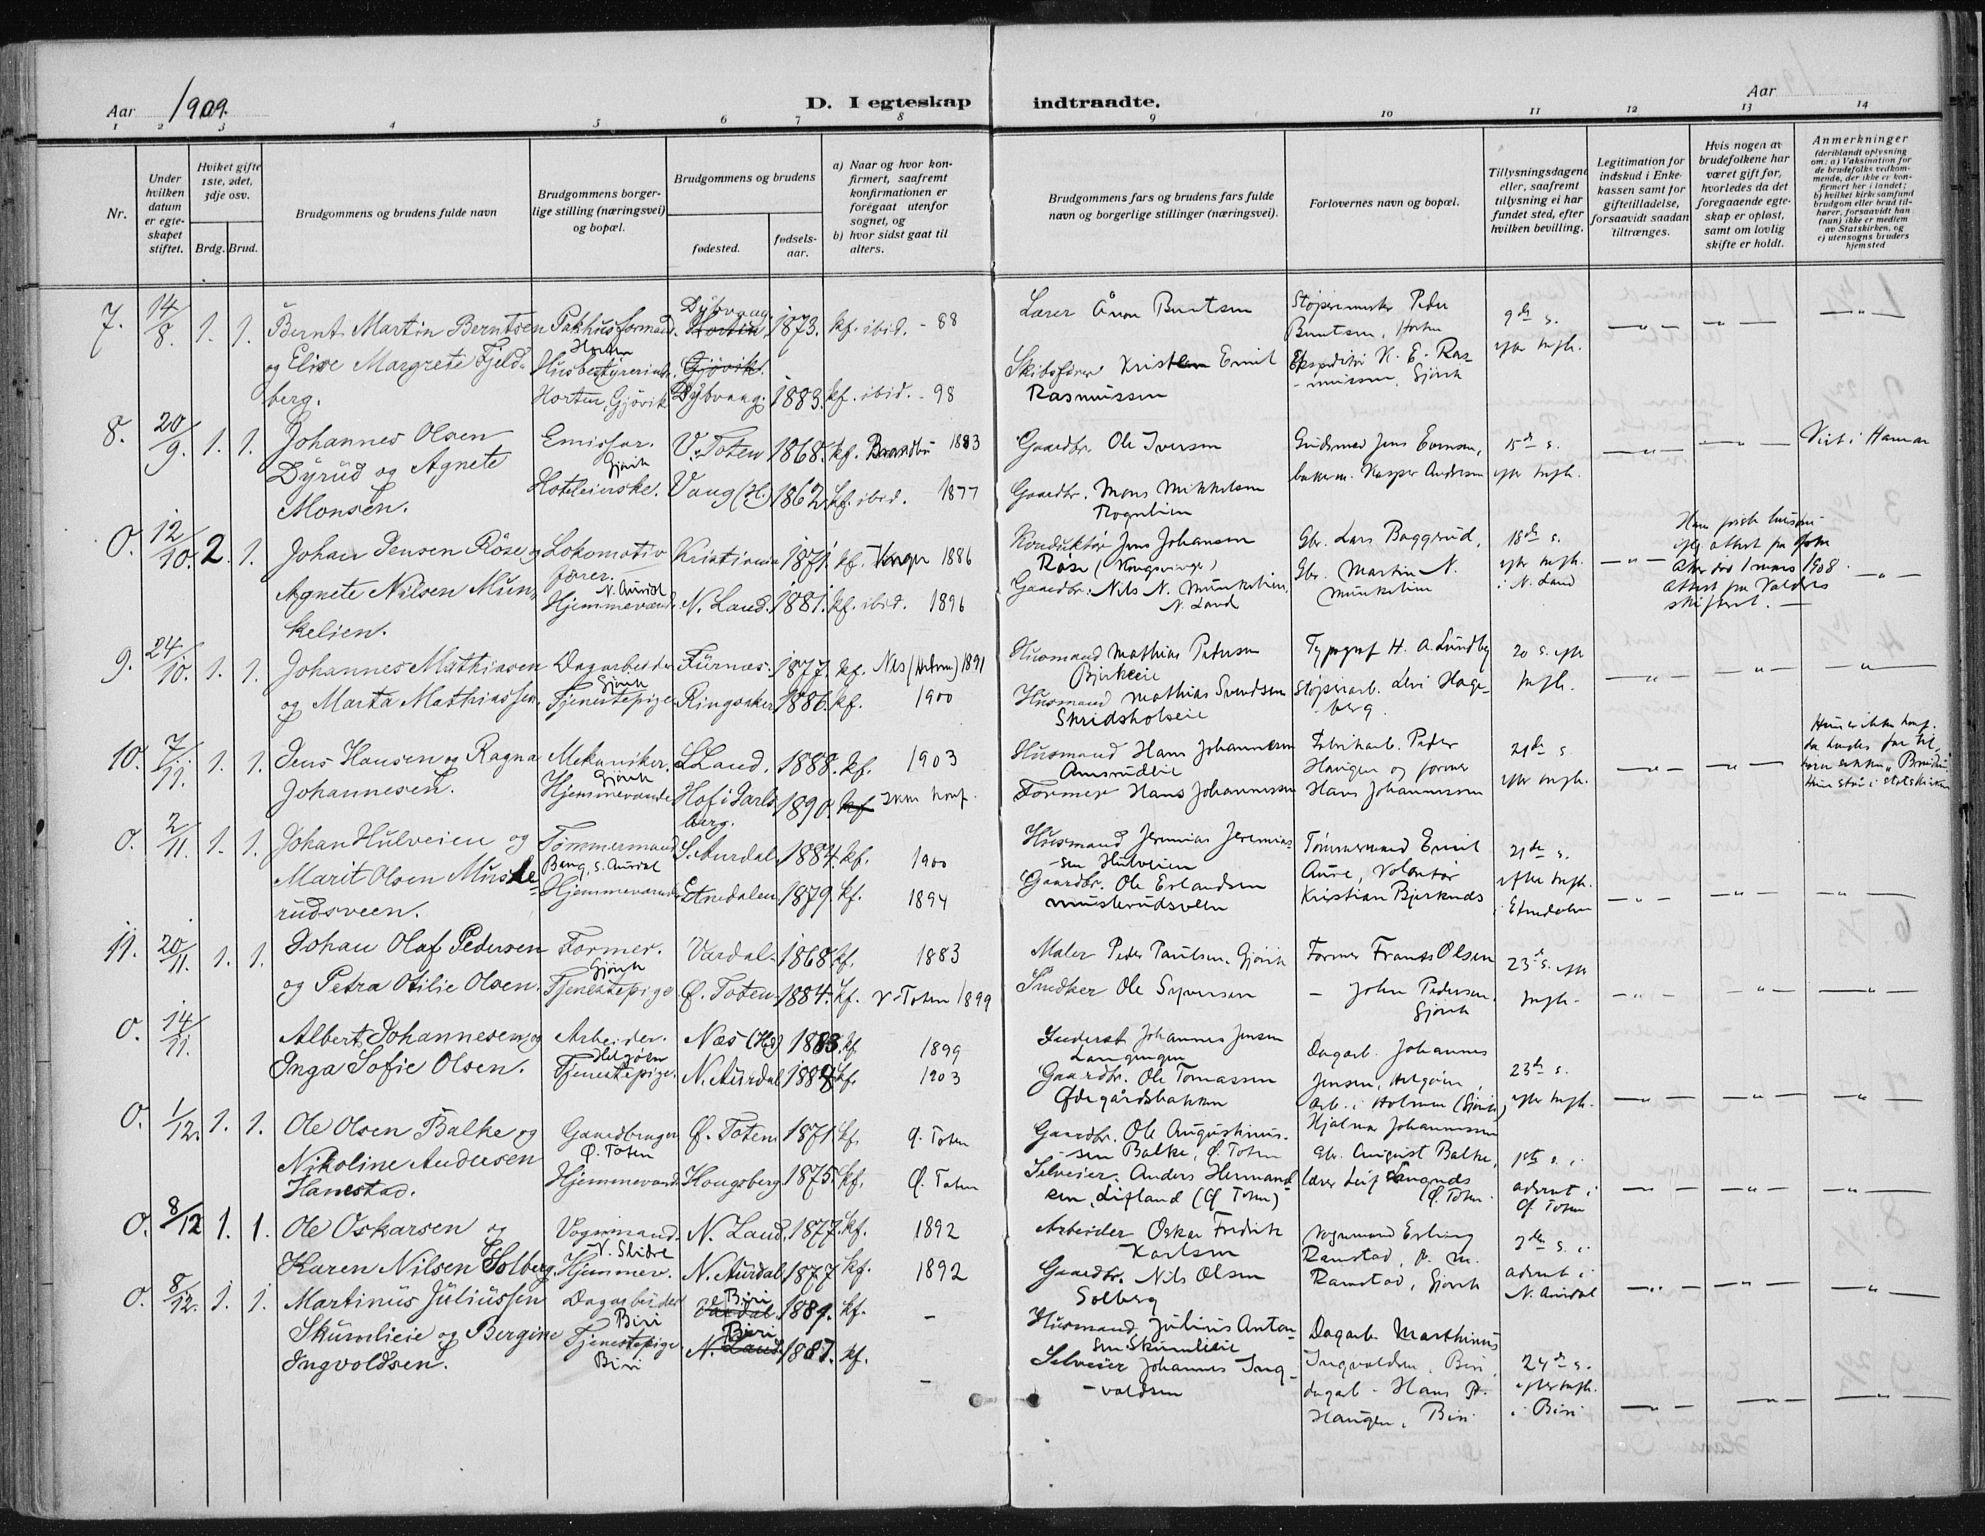 Aar 1909. D. I egteskap indtraadte. Aar
1 2 3 4 5 6 7 8 9 10 11 12 13 14
Nr.
Under hvilken datum er egteskapet stiftet.
Hviket gifte 1ste, 2det, 3dje osv.
Brdg. Brud.
Brudgommens og brudens fulde navn
Brudgommens borgerlige stilling (næringsvei) og bopæl.
Brudgommens og brudens
fødested. fødselsaar.
a) Naar og hvor konfirmert, saafremt konfirmationen er foregaat utenfor sognet, og
b) hvor sidst gaat til alters.
Brudgommens fars og brudens fars fulde navn og borgerlige stillinger (næringsvei).
Forlovernes navn og bopæl.
Tillysningsdagene eller, saafremt tillysning ei har fundet sted, efter hvilken bevilling.
Legitimation for indskud i Enkekassen samt for giftetilladelse, forsaavidt saadan tiltrænges.
Hvis nogen av brudefolkene har været gift før, hvorledes da det foregaaende egteskap er opløst, samt om lovlig skifte er holdt.
Anmerkninger (deriblandt oplysning om: a) Vaksination for de brudefolks vedkommende, der ikke er konfirmert her i landet; b) hvilket kirkesamfund brudgom eller brud tilhører, forsaavidt han (hun) ikke er medlem av Statskirken, og c) utensogns bruders hjemsted
7. 14/8. 1. 1. Bernt Martin Berntsen Pakhusformand. Horten Dybvaag. Horten 1873. kf. ibid. - 88
og Elise Margrete Fjeldberg. Husbestyrerinde, Horten, Gjøvik Gjøvik. Dybvaag. 1883. kf. ibid. - 98
Lærer Aron Berntsen
Skibsfører Kristen Emil Rasmussen
Støperimester Peder Berntsen, Horten
Ekspeditør K. E. Rasmussen, Gjøvik
9de s. efter trefh.
8. 20/9. 1. 1. Johannes Olsen Dyrud og Agnete Monsen.
Emissær. Gjøvik V. Toten 1868. kf. Brandbu 1883
Hoteleierske. Vang (H.) 1862. kf. ibid. 1877
Gaardbr. Ole Iversen
Gaardbr. Mons Mikkelsen Rognlien
Jens Evensen, bakerm. Kasper Andersen
15de s. efter trefh.
Viet i Hamar
0. 12/10. 2. 1. Johan Jensen Röse og Agnete Nilsen Munkelien.
Lokomotivfører. N. Aurdal Kristiania 1871. kf. 1886
Hjemmeværende N. Land. 1881. kf. ibid. 1896
Konduktør Jens Johansen Røse (Kongsvinger)
Gaardbr. Nils N. Munkelien, N. Land
Gbr. Lars Baggerud,
Gbr. Martin N. Munkelien
18de s. efter trefh. i N. Land
død 1 mars 1908.
attest fra Valdres
skifteret.
9. 24/10. 1. 1. Johannes Mathiasen og Marta Mathiassen.
Dagarbeider Gjøvik Furnæs. 1877. kf. Nes (Hedem) 1891
Tjenestepige Ringsaker 1886. kf. 1900
Husmand Mathias Pedersen Bjerkeeie
Husmand Mathias Svendsen Skridsholseie
Typograf H. A. Lundby
Støperiarb. Levi Hageberg.
20 s. efter trefh.
10. 7/11. 1. 1. Jens Hansen og Ragna Johannesen.
Mekaniker. Gjøvik L. Land. 1888. kf. 1903
Hjemmeværende Hof i Jarlsberg. 1890. kf ikke konf.
Husmand Hans Johannesen Amsrudeie
Former Hans Johannessen
Fabrikarb. Peder Haugen og former Hans Johannessen
21de s. efter trefh.
Hun er ikke konf.
Hun staar i statskirken
0. 2/11. 1. 1. Johan Hulveien og Marit Olsen Musterudsveen.
Tømmermand Bang, S. Aurdal S. Aurdal 1884. kf. 1900
Hjemmeværende Etnedalen 1879. kf. 1894
Husmand Jeremias Jeremiassen Hulveien
Gaardbr. Ole Erlandsen Musterudsveen
Tømmermand Emil Aure, Volontør Kristian Bjerknes
21de s. efter trefh. i Etnedalen
11. 20/11. 1. 1. Johan Olaf Pedersen og Petra Otilie Olsen.
Former. Gjøvik Vardal 1868. kf. 1883
Tjenestepige Ø. Toten 1884. kf. V. Toten 1899
Maler Peder Paulsen, Gjøvik
Snedker Ole Syversen
Former Frants Olsen
- John Pedersen, Gjøvik
23de s. efter trefh.
0. 14/11. Albert Johannesen og Inga Sofie Olsen.
Arbeider. Helgøen Næs (Hd) 1883. kf 1899
Tjenestepige. N. Aurdal 1884 kf. 1903
Inderst Johannes Jensen
Gaardbr. Ole Tomassen Ødegårdsbakken
Dagarb. Johannes Jensen, Helgøen,
Arb. i Holmen (Gjøvik) Hjalmar Johannessen
23de s. efter trefh.
0. 1/12. 1. 1. Ole Olsen Balke og Nikoline Andersen Hanestad.
Gaardbruger Ø. Toten Ø. Toten 1871. kf. Ø. Toten
Hjemmeværende Kongsberg 1875. kf. Ø. Toten
Gaardbr. Ole Augustinussen Balke, Ø. Toten
Selveier Anders Hermandsen, Lifland (Ø. Toten)
Gbr. August Balke, lærer Leif (Ø. Toten.
1ste s. i advent i Ø. Toten
0. 8/12 1. 1. Ole Oskarsen og Karen Nilsen Solberg.
Vognmand. V. Slidre N. Land. 1877. kf. 1892
Hjemmev. N. Aurdal. 1877. kf. 1892
Arbeider Oskar Fredrik Karlsen
Gaardbr. Nils Olsen Solberg
Vognmand Erling Ramstad, Ramstad, Gjøvik
2den s. i advent i N. Aurdal
0. 8/12. 1. 1. Martinus Juliussen Skumlieie og Bergine Ingvoldsen.
Dagarbeider Biri Biri Vardal 1889. kf. -
Tjenestepige Biri Biri N. Land 1887. kf. -
Husmand Julius Antonsen Skumlieie
Selveier Johannes Ingvoldsen
Dagarb. Marthinus Ingvoldsen, Biri
dagarb. Hans P. Haugen, Biri
24de s. efter trefh. i Biri